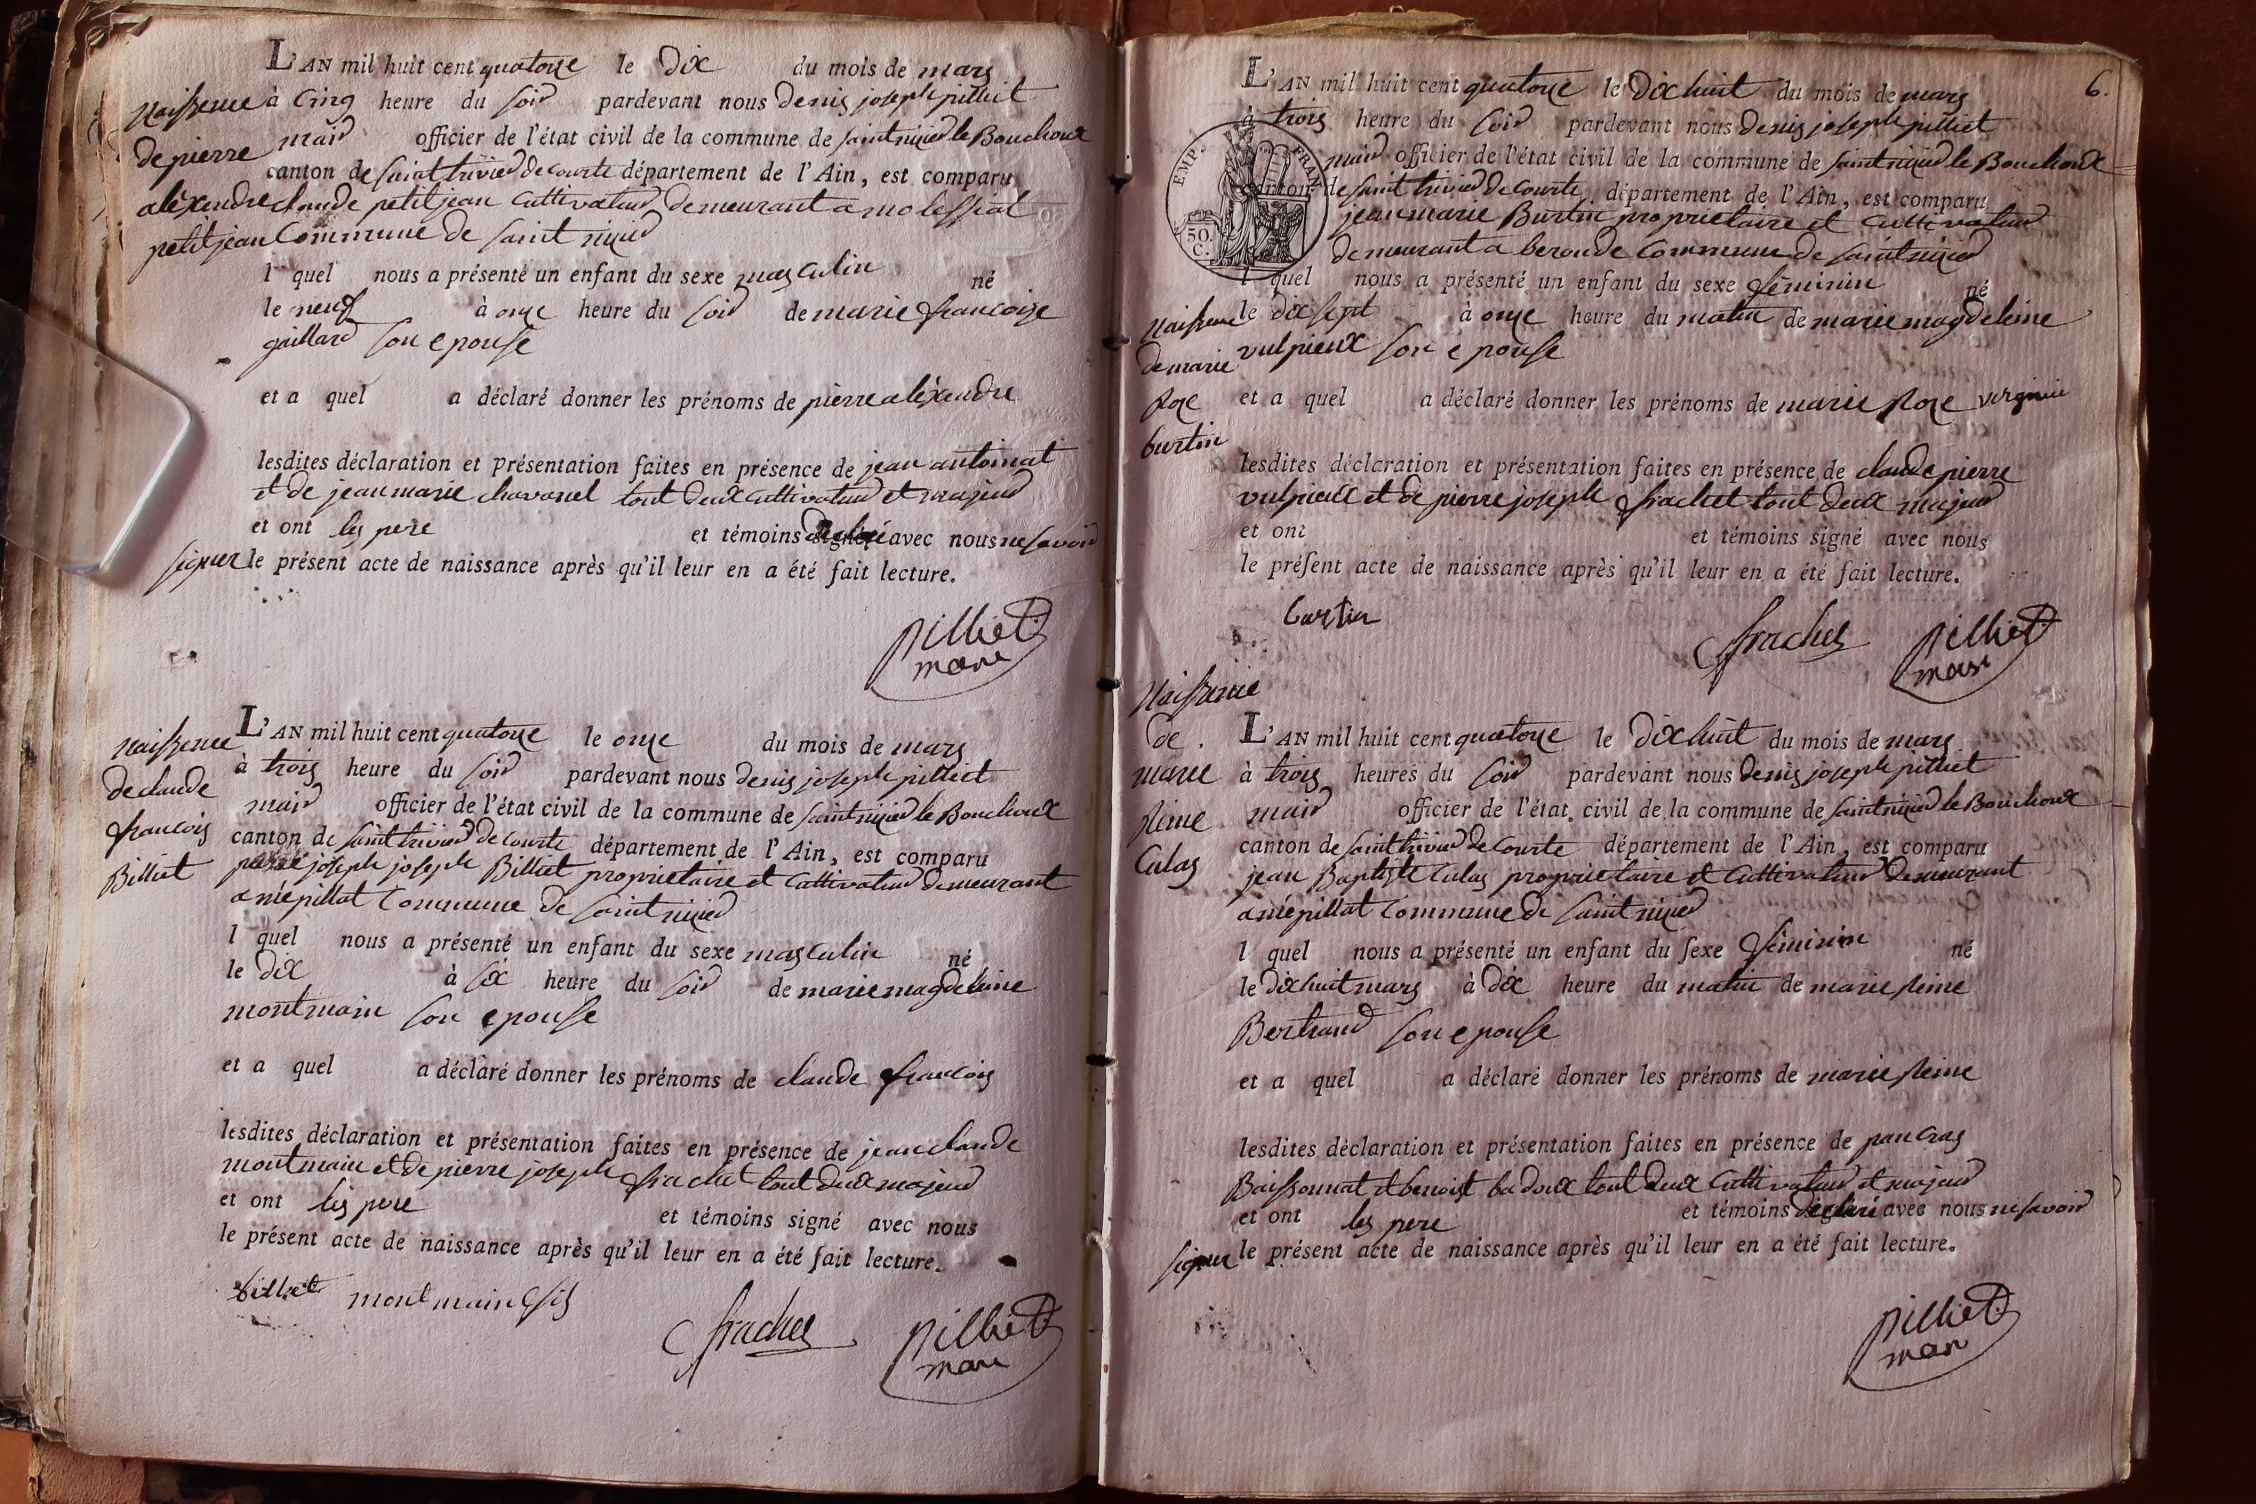 L'AN mil huit cent quatorze le dix du mois de mars
à cinq heure du soir pardevant nous denis joseph pilliet
maire officier de l'état civil de la commune de saint nizier le Bouchoux
canton de saint trivier de courte département de l'Ain, est comparu
claude petitjean cultivateur demeurant a molessiat
commune de saint nizier
l quel nous a présenté un enfant du sexe masculin né
le neuf à onze heure du soir de marie françoise
gaillard son epouse
et a quel a déclaré donner les prénoms de pierre aléxandre
lesdites déclaration et présentation faites en présence de jean antoinat
et de jean marie chavanel tout deux cultivateur et majeur
et ont les pere et témoins declaré avec nous ne savoir
signer le présent acte de naissance après qu'il leur en a été fait lecture.
pilliet
maire
naissence
de pierre
aléxandre
petitjean
L'AN mil huit cent quatorze le onze du mois de mars
à trois heure du soir pardevant nous denis joseph pilliet
maire officier de l'état civil de la commune de saint nizier le Bouchoux
canton de saint trivier de courte département de l'Ain, est comparu
pierre joseph joseph Billiet proprietaire et cultivateur demeurant
a mépillat commune de saint nizier
l quel nous a présenté un enfant du sexe masculin né
le dix à six heure du soir de marie magdeleine
montmain son epouse
et a quel a déclaré donner les prénoms de claude françois
lesdites déclaration et présentation faites en présence de jean claude
montmain et de pierre joseph frachet tout deux majeur
et ont les pere et témoins signé avec nous
le présent acte de naissance après qu'il leur en a été fait lecture.
billiet montmain fis
frachet pilliet
maire
naissence
de claude
françois
Billiet
6.
L'AN mil huit cent quatorze le dix huit du mois de mars
à trois heure du soir pardevant nous denis joseph pilliet
maire officier de l'état civil de la commune de saint nizier le Bouchoux
canton de saint trivier de courte département de l'Ain, est comparu
jean marie Burtin proprietaire et cultivateur
demeurant a beroude commune de saint nizier
l quel nous a présenté un enfant du sexe féminin né
le dix sept à onze heure du matin de marie magdeleine
vulpieux son epouse
et a quel a déclaré donner les prénoms de marie Roze virginie
lesdites déclaration et présentation faites en présence de claude pierre
vulpieux et de pierre joseph frachet tout deux majeur
et ont et témoins signé avec nous
le présent acte de naissance après qu'il leur en a été fait lecture.
burtin frachet pilliet
maire
EMP. FRAN
50.
C.
naissence
de marie
Roze
burtin
L'AN mil huit cent quatorze le dix huit du mois de mars
à trois heures du soir pardevant nous denis joseph pilliet
maire officier de l'état civil de la commune de saint nizier le Bouchoux
canton de saint trivier de courte département de l'Ain, est comparu
jean Baptiste Culas proprietaire et cultivateur demeurant
a mépillat commune de saint nizier
l quel nous a présenté un enfant du sexe féminin né
le dix huit mars à dix heure du matin de marie Reine
Bertrand son epouse
et a quel a déclaré donner les prénoms de marie Reine
lesdites déclaration et présentation faites en présence de pancras
Baissonnat et benoist badoux tout deux cultivateur et majeur
et ont les pere et témoins declaré avec nous ne savoir
signer le présent acte de naissance après qu'il leur en a été fait lecture.
pilliet
maire
Naissence
de
marie
Reine
Culas